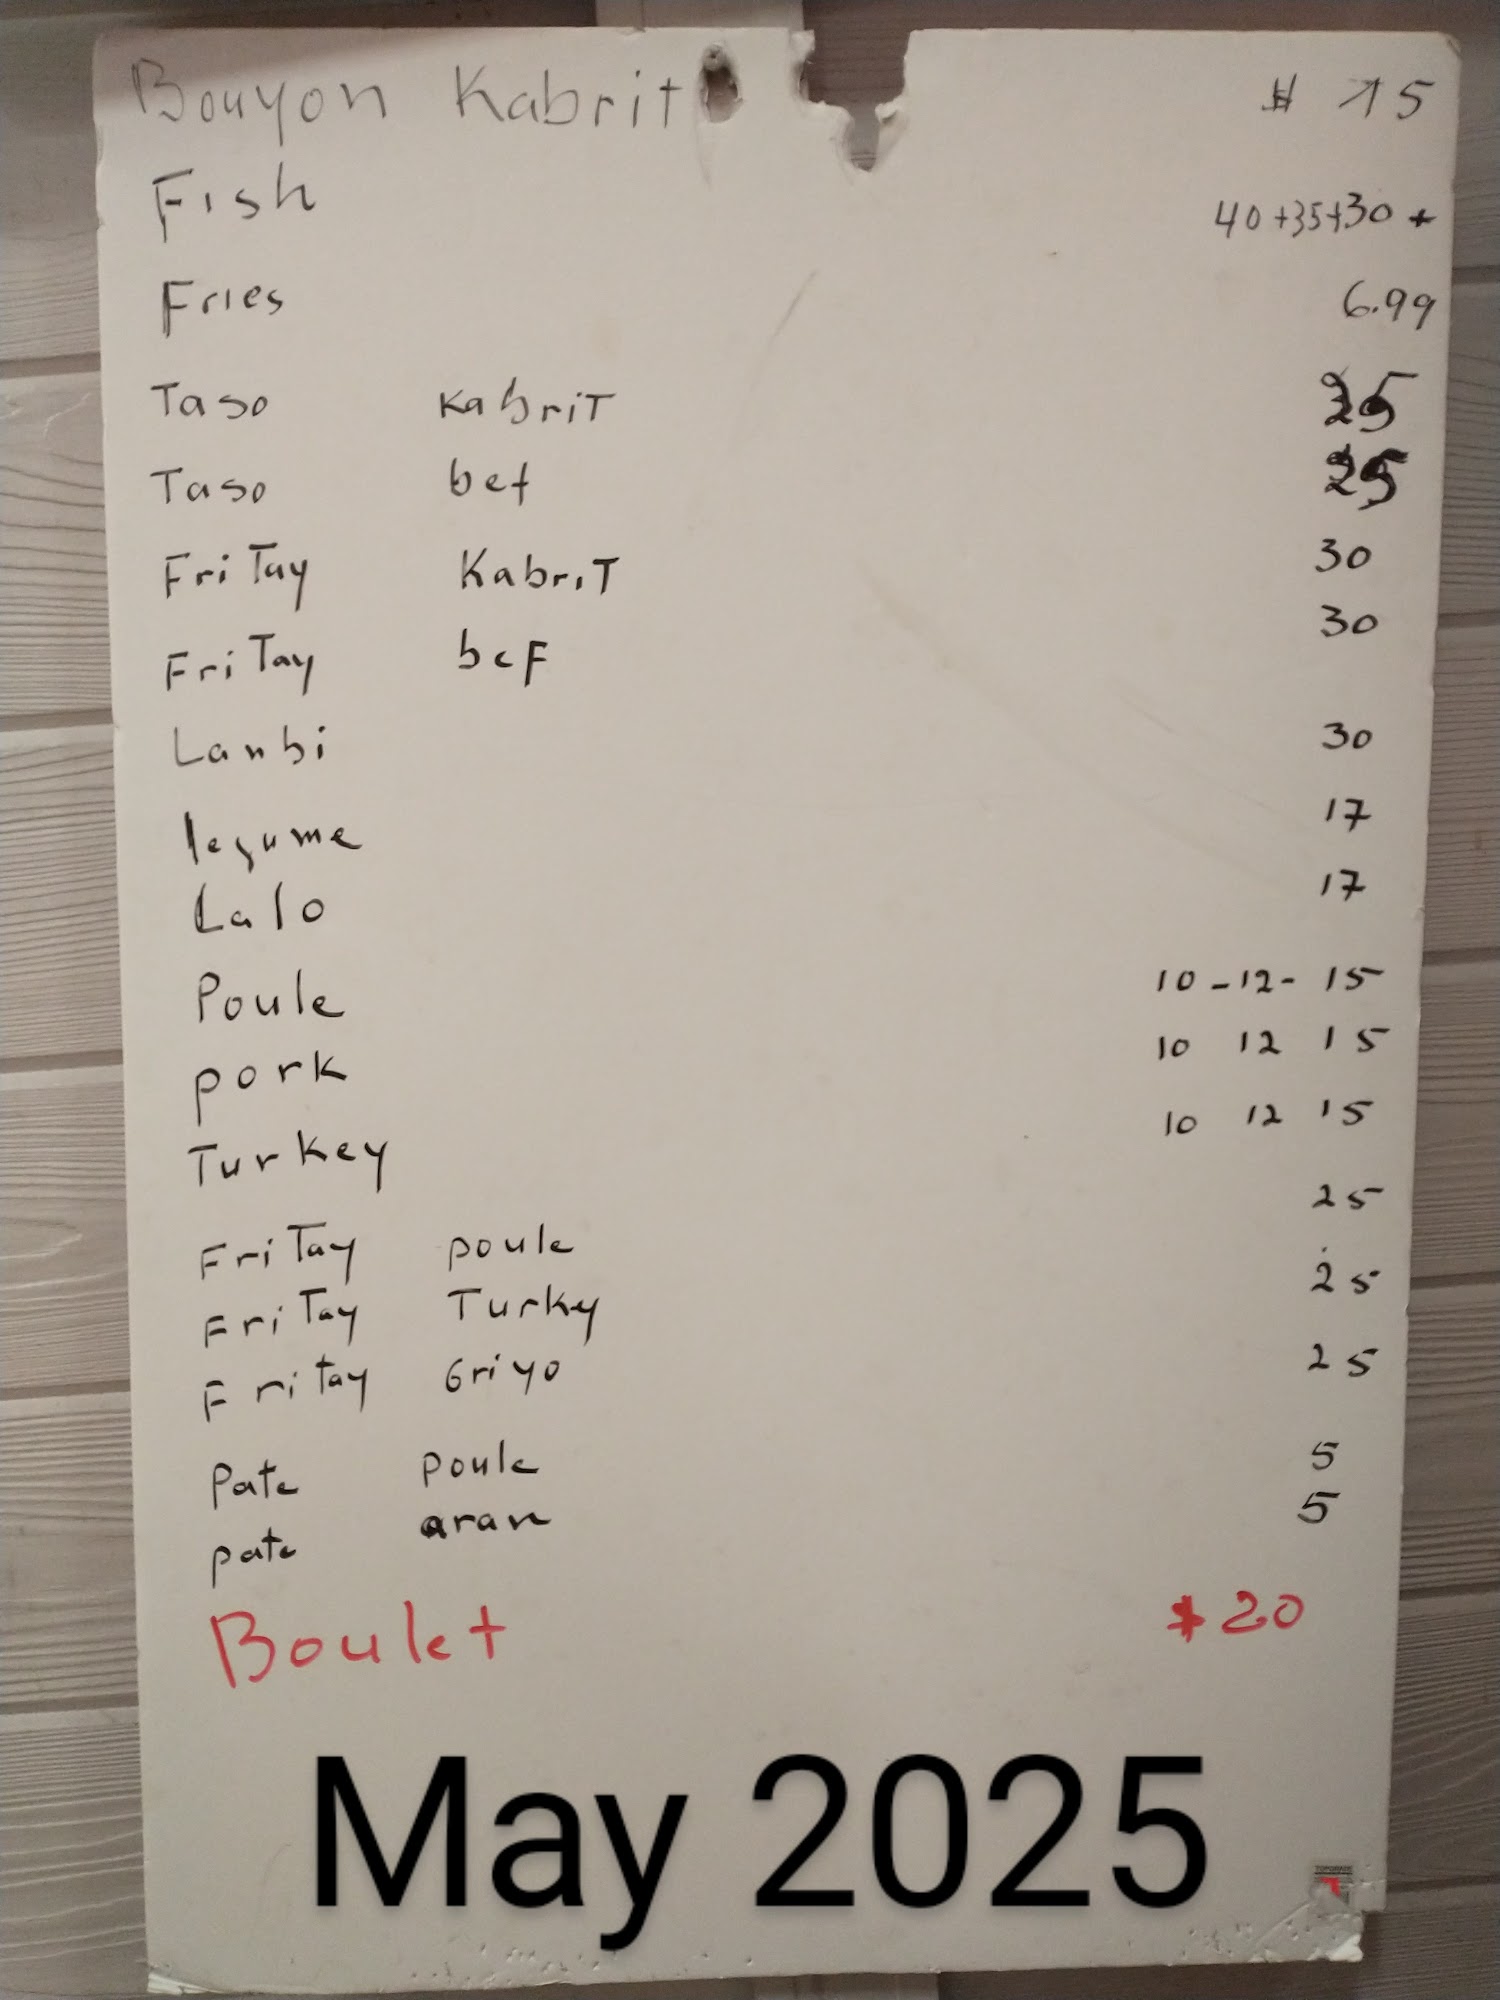 Bouyon Kabrit $ 15
Fish 40+35+30+
Fries 6.99
Taso KabriT 25
Taso bef 25
FriTay KabriT 30
FriTay beF 30
Lanbi 30
legume 17
Lalo 17
Poule 10-12-15
pork 10 12 15
Turkey 10 12 15
FriTay poule 25
FriTay Turky 25
Fritay Griyo 25
Pate poule 5
pate aran 5
Boulet $20
May 2025